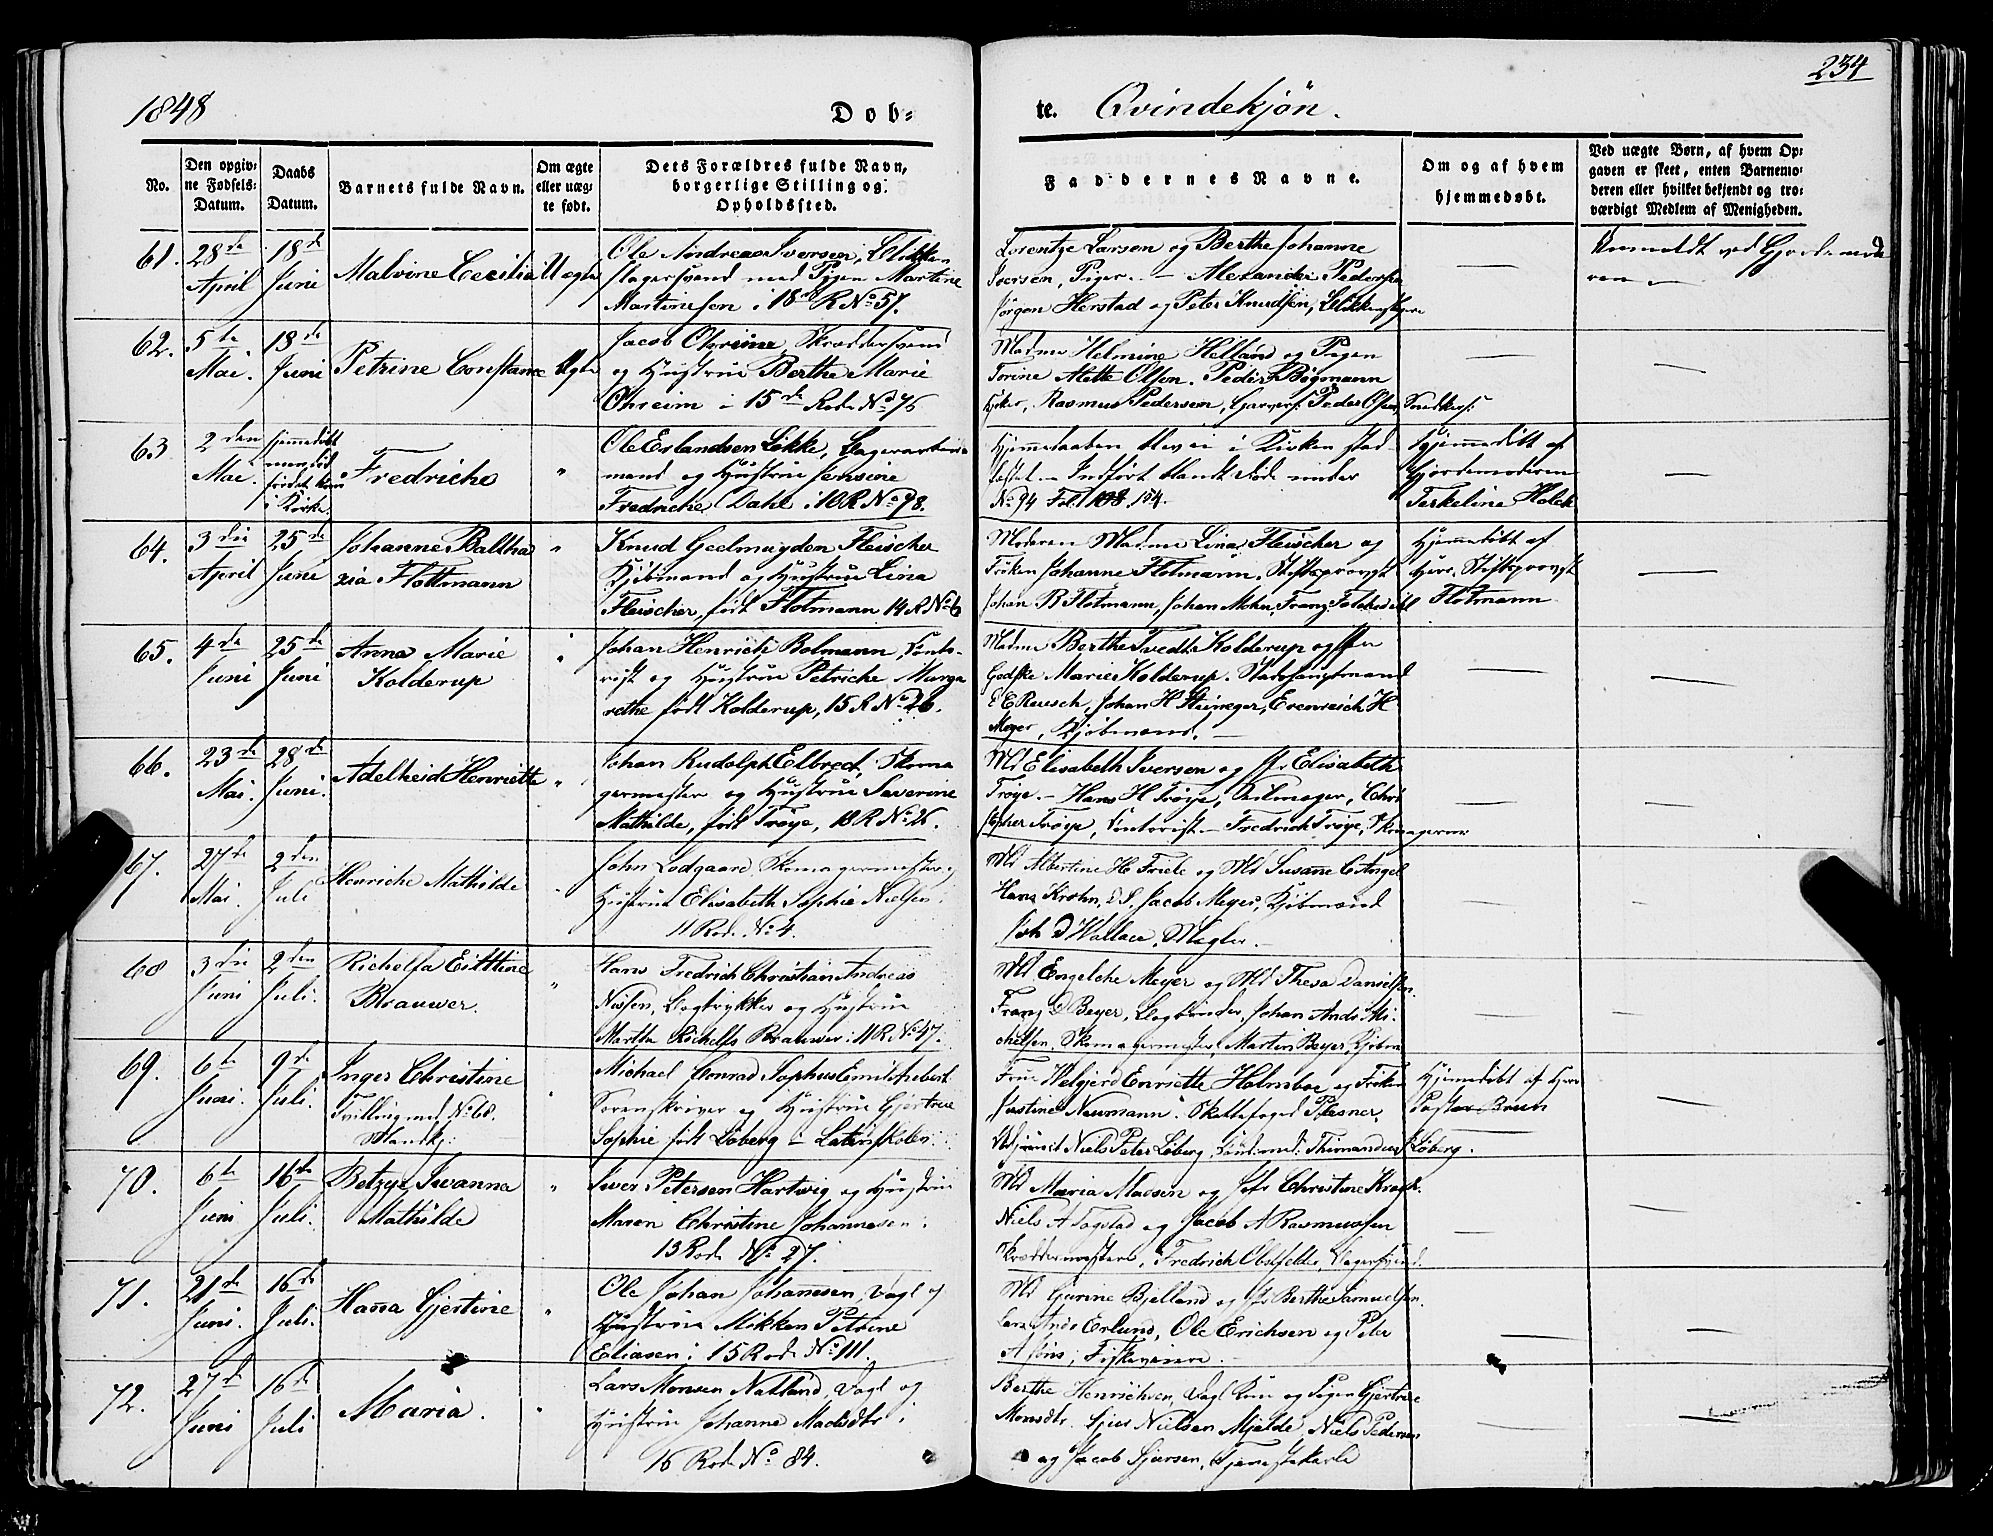 234
1848 Dob- te. Qvindekjön.
No.
Den opgiv-
ne Fødsels-
Datum.
Daabs
Datum.
Barnets fulde Navn.
Om ægte
eller uæg-
te født.
Dets Forældres fulde Navn,
borgerlige Stilling og
Opholdssted.
Faddernes Navne.
Om og af hvem
hjemmedøbt.
Ved uægte Børn, af hvem Op-
gaven er skeet, enten Barnemo-
deren eller hvilket bekjendt og tro-
værdigt Medlem af Menigheden.
61.
28de
April
18de
Juni
Malvine Cecilia
Uægte
Ole Andreas Iversen, Blikken
slagersvend med Pigen Martine
Martinusen i 18de R No 57.
Lorentze Larsen og Berthe Johanne
Iversen, Piger. — Alexander Pedersen
Jørgen Herstad og Peter Knudsen, Blikkenslagere
—
Anmeldt ved Gjordemode
ren —
62.
5te
Mai.
18de
Juni
Petrine Constance
Ægte
Jacob Ohreim Skreddersvend
og Hustrue Berthe Marie
Ohreim i 15de Rode No 76
Madme Helmine Helland og Pigen
Torine Mette Olsen. Peder Bøgmann
Rasmus Pedersen, Peder Olsen Snedkers:
—
—
63
2den
Mai.
hjemmedøbt
men død
førend kom
i Kirke
Fredriche
"
Ole Erlandsen Løkke, Lagerarbeids
mand og Hustrue Jensine
Fredriche Dahl i 10 R No 98.
Hjemmedaaben blev ei i Kirken stad
fæstet. Indført blandt døde under
No 94 Fol 154.
Hjemmedøbt af
Gjordemoderen
Terkeline Holck
—
64.
3die
April
25de
Juni
Johanne Baltha
zia Flottmann
"
Knud Geelmuyden Fleischer
Kjøbmand og Hustrue Lina
Fleischer, født Flotmann 14 R No 6
Moderen Madme Lina Fleischer og
Frøken Johanne Flotmann. Stiftsprovst
Johan B Flotmann, Johan Mohr, Franz
Hjemmedøbt af
Herr. Stiftsprovst
Flotmann
—
65.
4de
Juni
25de
Juni
Anna Marie
Kolderup
"
Johan Henrich Bolmann, Conto-
rist og Hustrue Petriche Marga
rethe født Kolderup, 15 R No 26.
Madme Berthe Tvedte Kolderup og Jfr
Godske Marie Kolderup. Stadshauptmand
E E Reusch, Johan H Steineger, Evenreich H
Meyer, Kjøbmand. —
—
—
66.
23de
Mai.
28de
Juni.
Adelheid Henriette
"
Johan Rudolph Elbrect, Skoma
germester og Hustrue Severine
Mathilde, født Trøye, 18 R No 26.
Md Elisabeth Iversen og Jfr Elisabeth
Trøye — Hans H Trøye, Seilmager, Chri
stopher Trøye, Contorist — Fredrich Trøye, Skomagersv:
—
—
67.
27de
Mai.
2den
Juli
Henriche Mathilde
"
John Lodgaard Skomagermester og
Hustrue Elisabeth Sophie Nielsen i
11 Rode No 4.
Md Albertine H Friele og Md Susanne C Angel
Hans Krohn, Jacob Meyer, Kjøbmænd
Joh D Wallace, Mægler. —
—
—
68
3die
Juni
2den
Juli.
Richelfa Eilttine
Brauwer.
"
Hans Fredrich Christian Andreas
Nissen, Bogtrykker og Hustrue
Martha Richelfs Brauwer i 11 R. No 47.
Md Engelche Meyer og Md Thesa Danielsen.
Franz D Beyer, Bogbinder, Johan Andr Mi-
chelsen, Skomagermester, Martin Beyer, Kjøbm
—
—
69.
6te
Juni.
9de
Juli.
Inger Christine
Tvilling med No 68.
Mandkj:
"
Michael Conrad Sophus Emil Aubert
Sorenskriver og Hustrue Gjertrue
Sophie født Løberg i Latinskolen
Frue Welgjerd Enriette Holmboe og Frøken
Justine Neumann. Skattefoged Plesner,
Adjunct Niels Peter Løberg,
Hjemmedøbt af Herr
Pastor Brun
Løberg.
70.
6te
Juni
16de
Juli.
Betzye Ivanna
Mathilde
"
Siver Petersen Hartwig og Hustrue
Maren Christine Johannesen i
13 Rode No 27.
Md Maria Madsen og Jfr Christine Krogh.
Niels A Fogstad og Jacob A Rasmussen
Skreddermestere, Fredrich Obstfelder, Bagersvend.
—
—
71.
21de
Juni.
16de
Juli.
Hanna Gjertine
"
Ole Johan Johannesen, Vogt og
Hustrue Mikken Petrine
Eliasen i 15 Rode No 111.
Md Gurine Bjelland og Jfr Berthe Samuelsen.
Lars Andr Erlund, Ole Erichsen og Peter
A Jöns, Fiskeveiere. —
—
—
72.
27de
Juni
16de
Juli
Maria.
"
Lars Monsen Natland, Vogt og
Hustrue Johanna Madsdtr i
16 Rode No 84.
Berthe Henrichsen, Vogt Kone og Pigen Gjertrue
Monsdtr. Sjur Nielsen Mjelde, Niels Pedersen
og Jacob Sjursen, Tjenestekarle
—
—